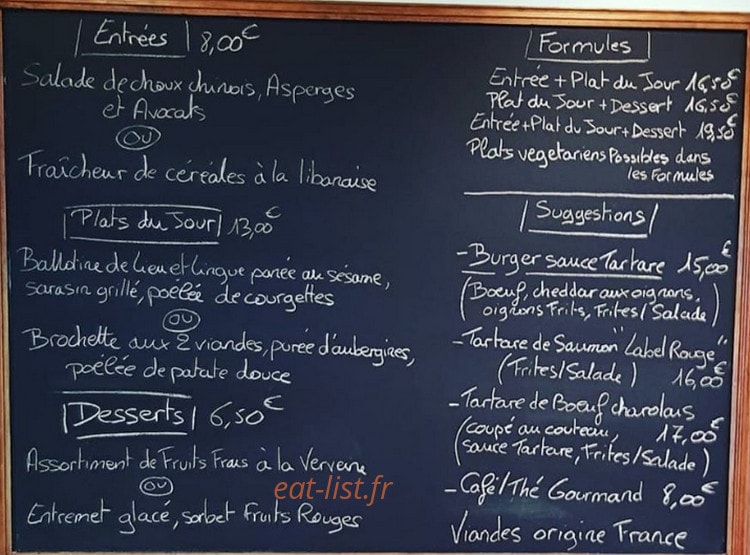 Entrées 8,00€
Salade de choux chinois, Asperges
et Avocats
OU
Traîcheur de céréales à la libanaise
Plats du Jour 13,00€
Ballotine de Lieu et Lingue panée au sésame,
sarasin grillé, poêlée de courgettes
OU
Brochette aux 2 viandes, purée d'aubergines,
poêlée de patate douce
Desserts 6,50€
Assortiment de Fruits Frais à la Verveine
OU
Entremet glacé, sorbet Fruits Rouges
Formules
Entrée + Plat du Jour 16,50€
Plat du Jour + Dessert 16,50€
Entrée + Plat du Jour + Dessert 19,50€
Plats vegetariens Possibles dans
les Formules
Suggestions
- Burger sauce Tartare 15,00€
(Boeuf, cheddar aux oignons,
oignons Frits, Frites/Salade)
- Tartare de Saumon "Label Rouge"
(Frites/Salade) 16,00€
- Tartare de Boeuf charolais
(coupé au couteau, 17,00€
sauce Tartare, Frites/Salade)
- Café/Thé Gourmand 8,00€
Viandes origine France
eat-list.fr